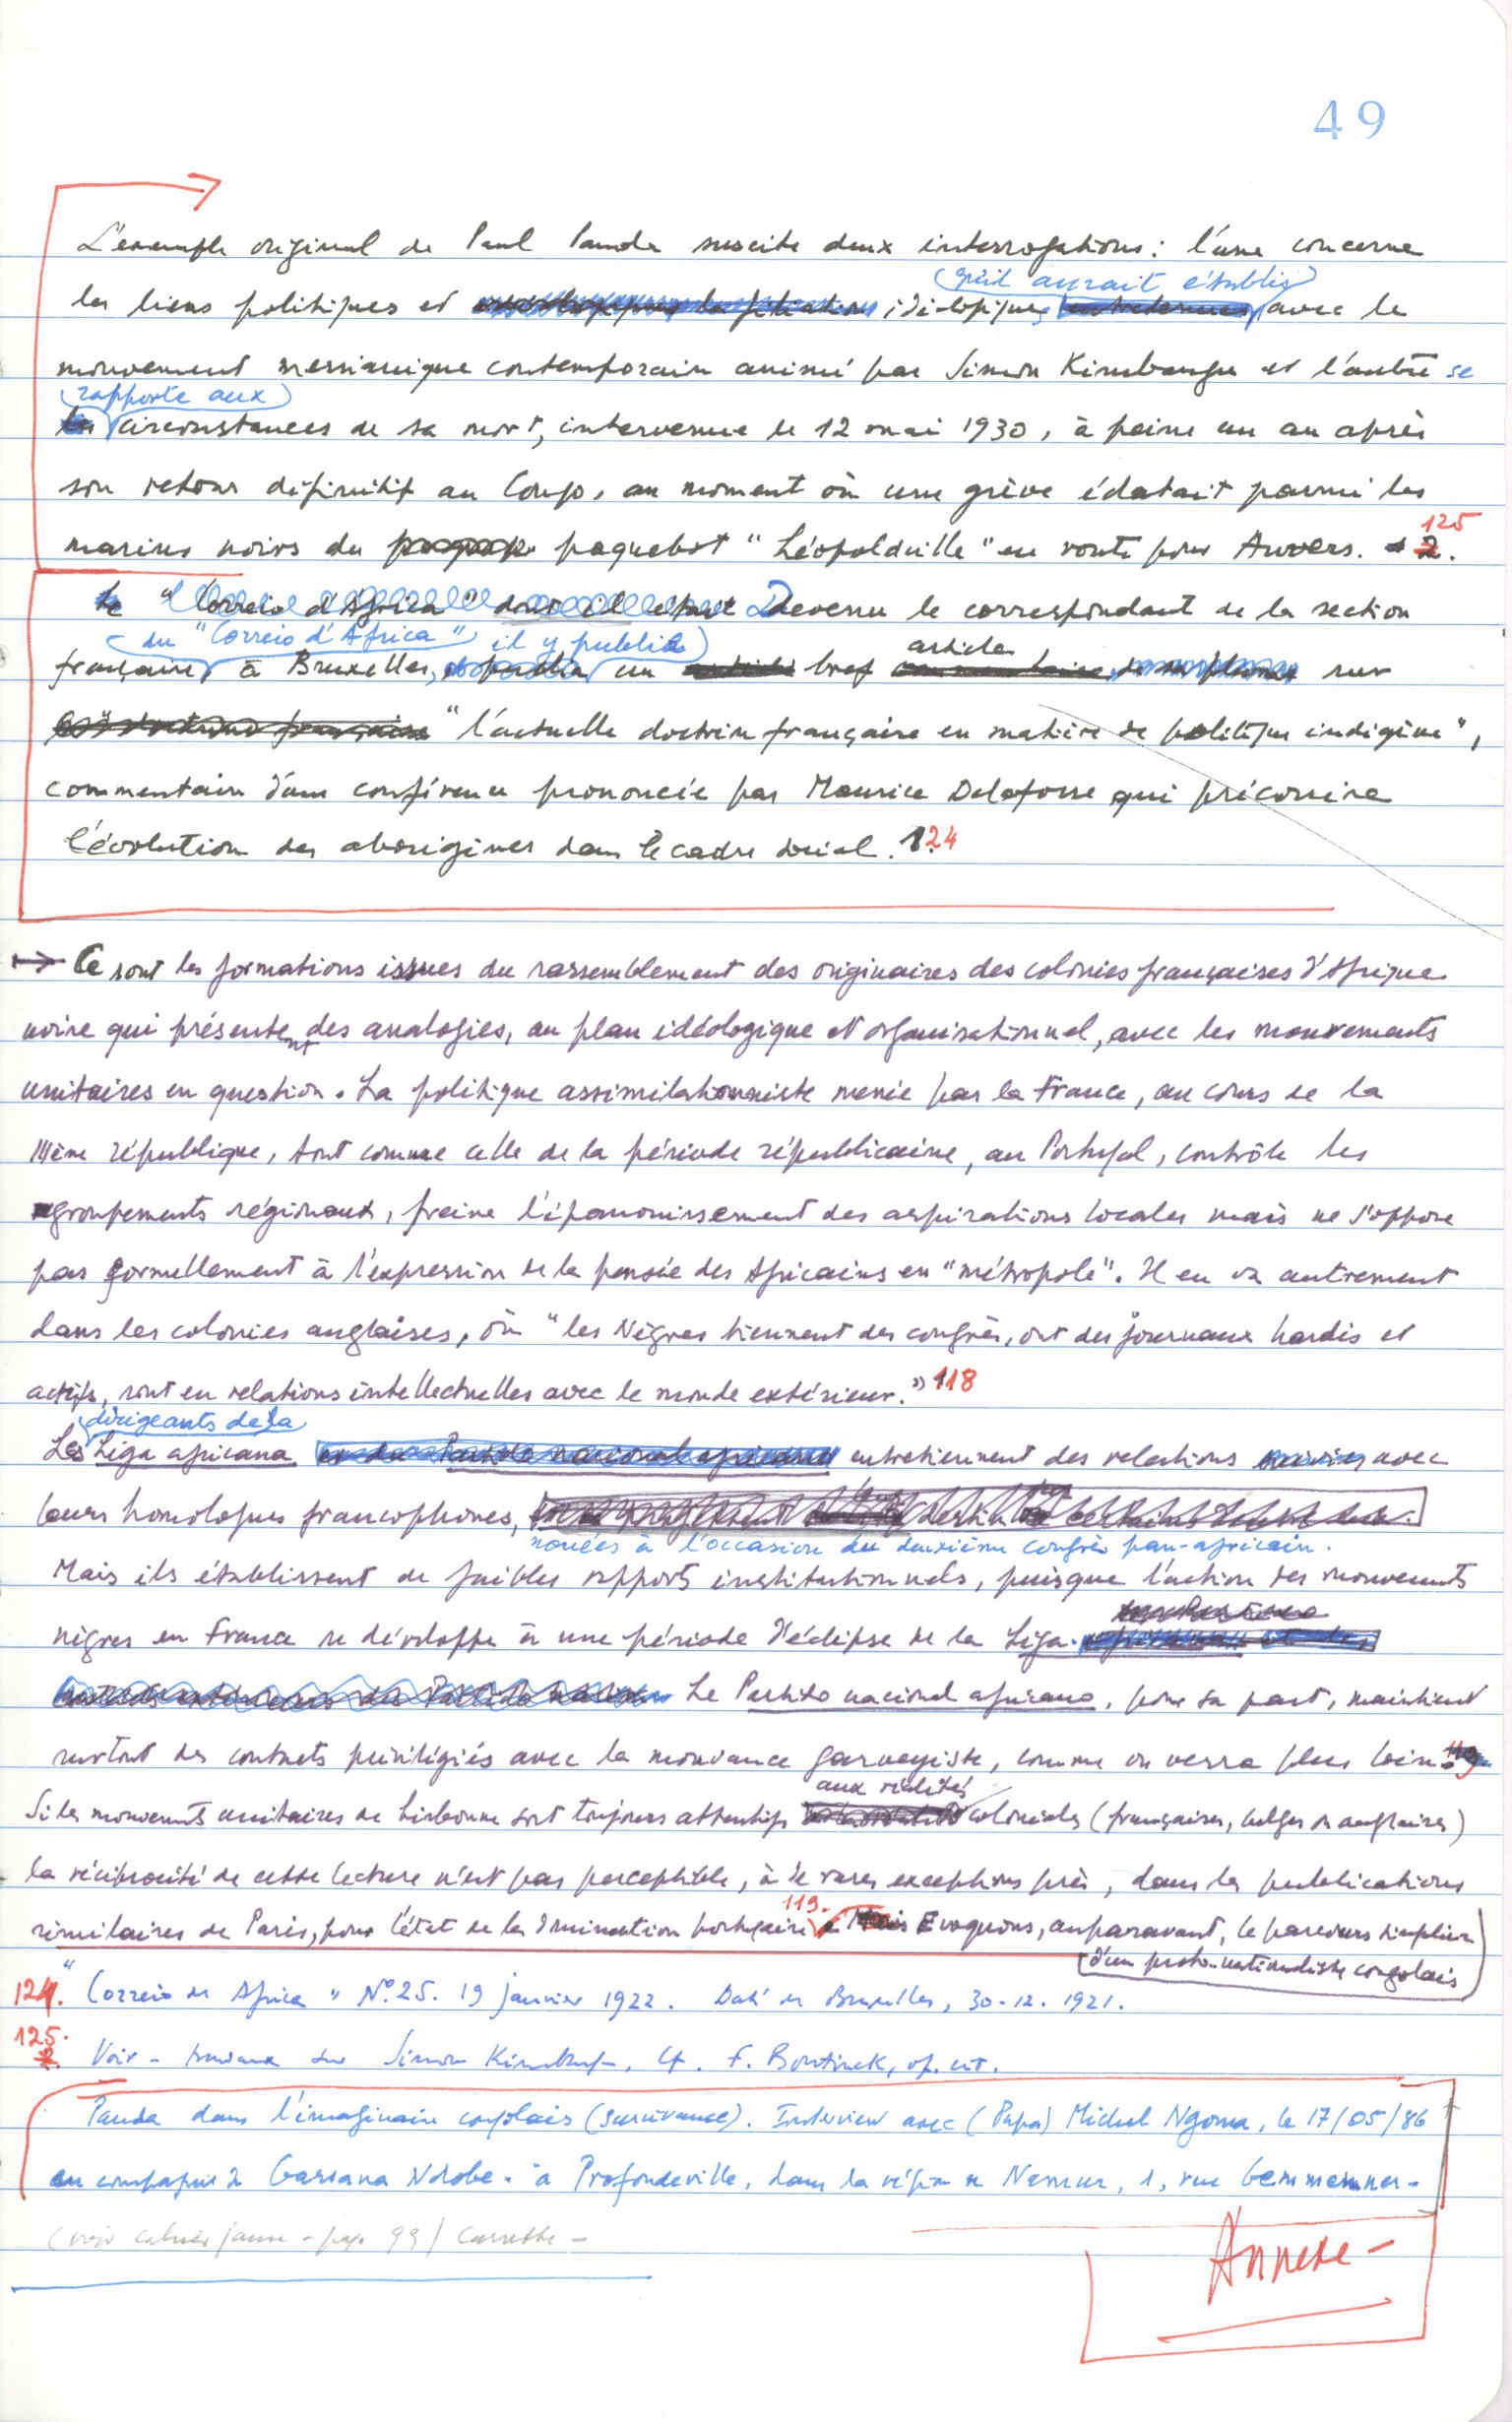 49
L'exemple original de Paul Panda suscite deux interrogations : l'une concerne
qu'il aurait établis
les liens politiques et idéologiques avec le
mouvement messianique contemporain animé par Simon Kimbangu et l'autre se
rapporte aux
circonstances de sa mort, intervenue le 12 mai 1930, à peine un an après
son retour définitif au Congo, au moment où une grève éclatait parmi les
marins noirs du paquebot "Léopoldville" en route pour Anvers. 125.
Le "Correio d'Africa" dont il était Devenu le correspondant de la section
du "Correio d'Africa" il y publia
article
française à Bruxelles, et publia un bref sur
"l'actuelle doctrine française en matière de politique indigène",
commentaire d'une conférence prononcée par Maurice Delafosse qui préconise
l'évolution des aborigènes dans le cadre social. 124
→ Ce sont les formations issues du rassemblement des originaires des colonies françaises d'Afrique
noire qui présentent des analogies, au plan idéologique et organisationnel, avec les mouvements
unitaires en question. La politique assimilationniste menée par la France, au cours de la
IIIème république, tout comme celle de la période républicaine, au Portugal, contrôle les
groupements régionaux, freine l'épanouissement des aspirations locales mais ne s'oppose
pas formellement à l'expression de la pensée des Africains en "métropole". Il en va autrement
dans les colonies anglaises, où "les Nègres tiennent des congrès, ont des journaux hardis et
actifs, sont en relations intellectuelles avec le monde extérieur." 118
dirigeants de la
Les Liga africana et du Partido nacional africano entretiennent des relations suivies avec
leurs homologues francophones,
nouées à l'occasion du deuxième congrès pan-africain.
Mais ils établissent de faibles rapports institutionnels, puisque l'action des mouvements
nègres en France se développe à une période d'éclipse de la Liga.
Le Partido nacional africano, pour sa part, maintient
surtout des contacts privilégiés avec la mouvance garveyiste, comme on verra plus loin. 119
aux réalités
Si les mouvements unitaires de Lisbonne sont toujours attentifs coloniales (françaises, belges ou anglaises)
la réciprocité de cette lecture n'est pas perceptible, à de rares exceptions près, dans les publications
similaires de Paris, pour l'état de la domination portugaise 119. Mais Evoquons, auparavant, le parcours singulier
d'un proto-nationaliste congolais
124. "Correio de Africa" Nº 25. 19 janvier 1922. Daté de Bruxelles, 30-12-1921.
125. Voir - travaux sur Simon Kimbangu. Cf. F. Bontinck, op. cit.
Panda dans l'imaginaire congolais (survivance). Interview avec (Papa) Michel Ngoma, le 17/05/86
en compagnie de Garsana Ndobe. à Profondeville, dans la région de Namur, 1, rue
(voir cahier jaune - page 93) Cassette -
Annexe -